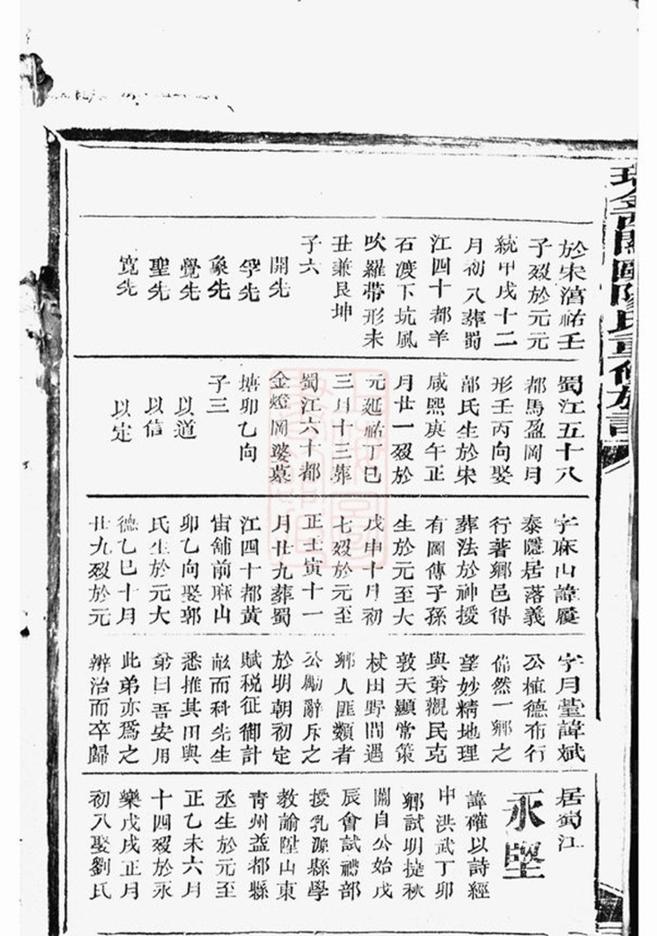 於宋淳祐壬
子歿於元元
統甲戌十二
月初八葬蜀
江四十都羊
石渡下坑風
吹羅帶形未
丑兼艮坤
子六
開先
孚先
象先
覺先
聖先
寬先
蜀江五十八
都馬盈岡月
形壬丙向娶
郤氏生於宋
咸熙庚午正
月廿一歿於
元延祐丁巳
三月十三葬
蜀江六十都
金燈岡婆墓
塘卯乙向
子三
以道
以信
以定
字麻山諱履
泰隱居落義
行著鄉邑得
葬法於神授
有圖傳子孫
生於元至大
戊申十月初
七歿於元至
正壬寅十一
月廿九葬蜀
江四十都黃
宙舖前麻山
卯乙向娶郭
氏生於元大
德乙巳十月
廿九歿於元
字月堂諱斌
公植德布行
偹然一鄉之
望妙精地理
與弟觀民克
敦天顯常策
杖田野間遇
鄉人匪類者
公勵辭斥之
於明朝初定
賦稅征御計
畝而科先生
悉推其田與
弟曰吾安用
此弟亦爲之
辨治而卒歸
居蜀江
永堅
諱確以詩經
中洪武丁卯
鄉試明㨗秋
闈自公始戊
辰會試禮部
授乳源縣學
教諭陞山東
青州益都縣
丞生於元至
正乙未六月
十四歿於永
樂戊戌正月
初八娶劉氏